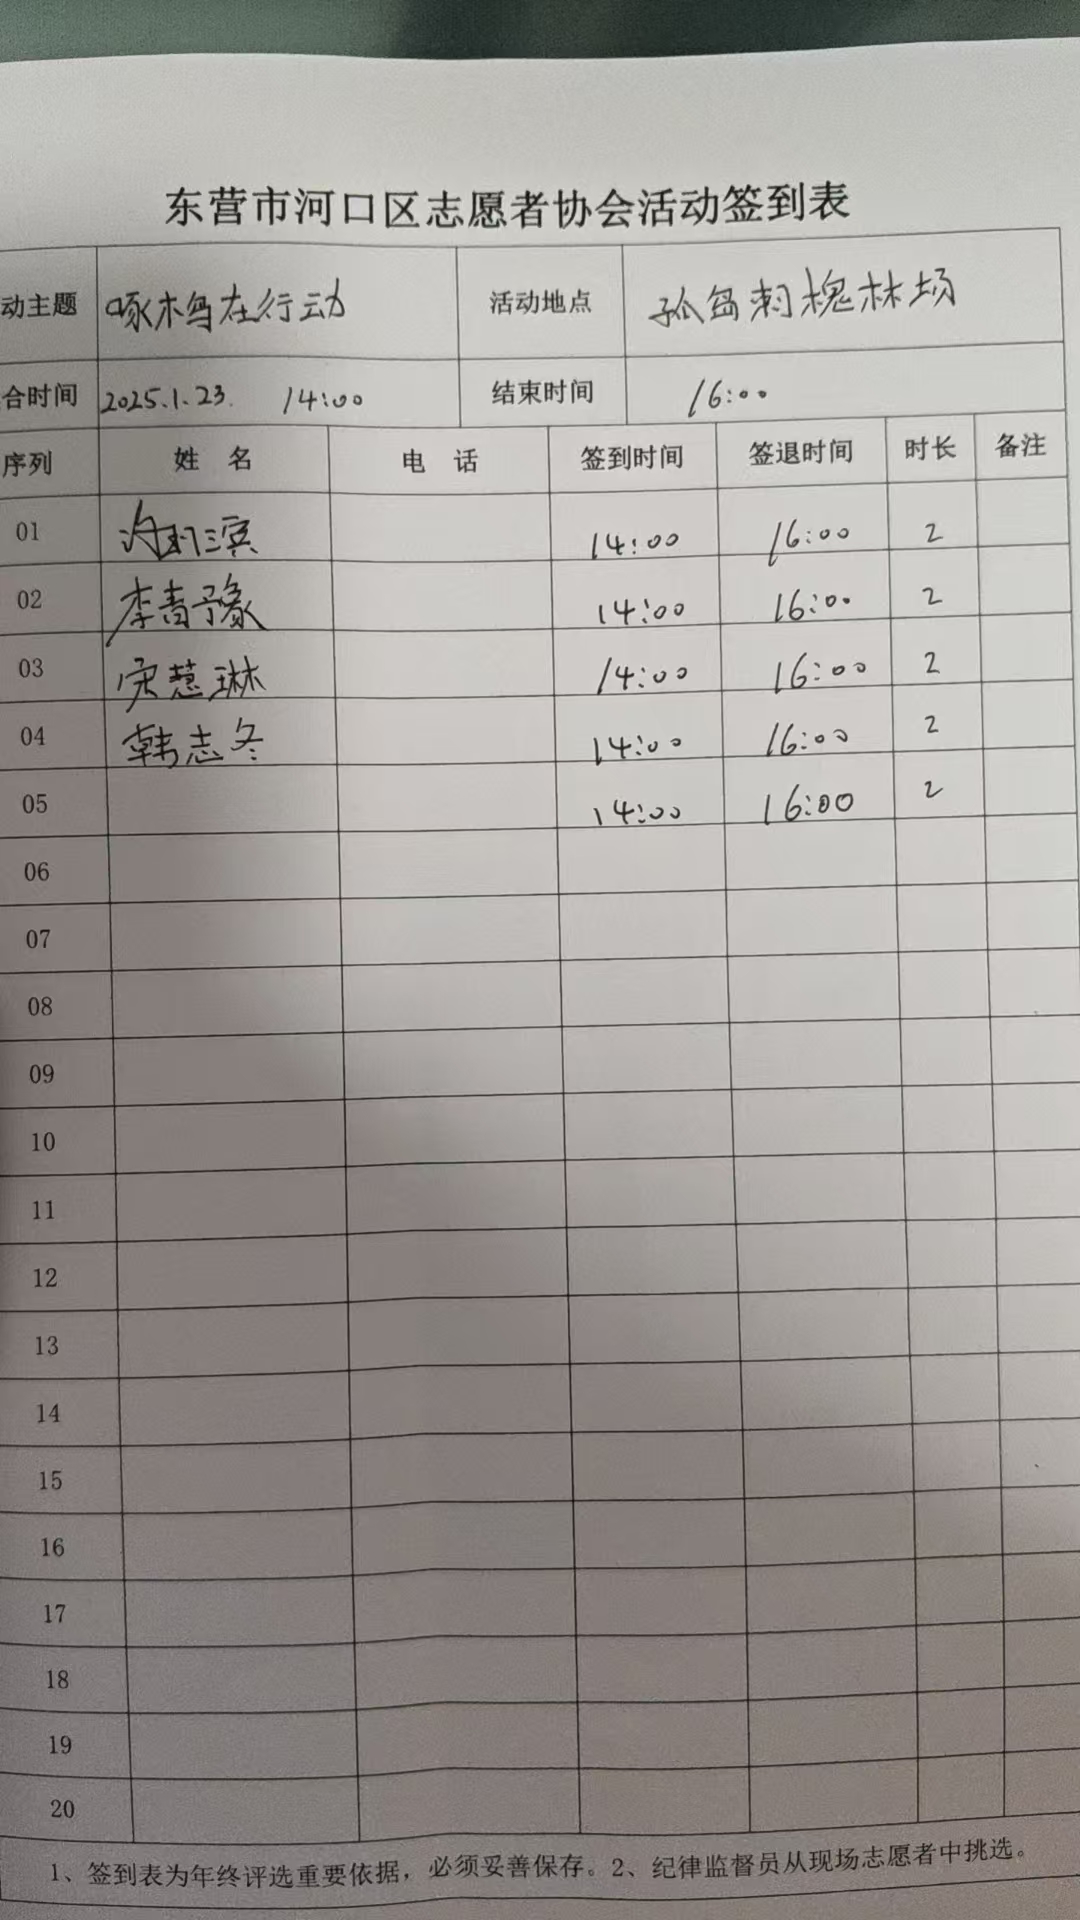 东营市河口区志愿者协会活动签到表
动主题 啄木鸟在行动 活动地点 孤岛刺槐林场
合时间 2025.1.23. 14:00 结束时间 16:00
序列 姓 名 电 话 签到时间 签退时间 时长 备注
01 滨 14:00 16:00 2
02 李青豫 14:00 16:00 2
03 宋慧琳 14:00 16:00 2
04 韩志冬 14:00 16:00 2
05 14:00 16:00 2
06
07
08
09
10
11
12
13
14
15
16
17
18
19
20
1、签到表为年终评选重要依据，必须妥善保存。2、纪律监督员从现场志愿者中挑选。